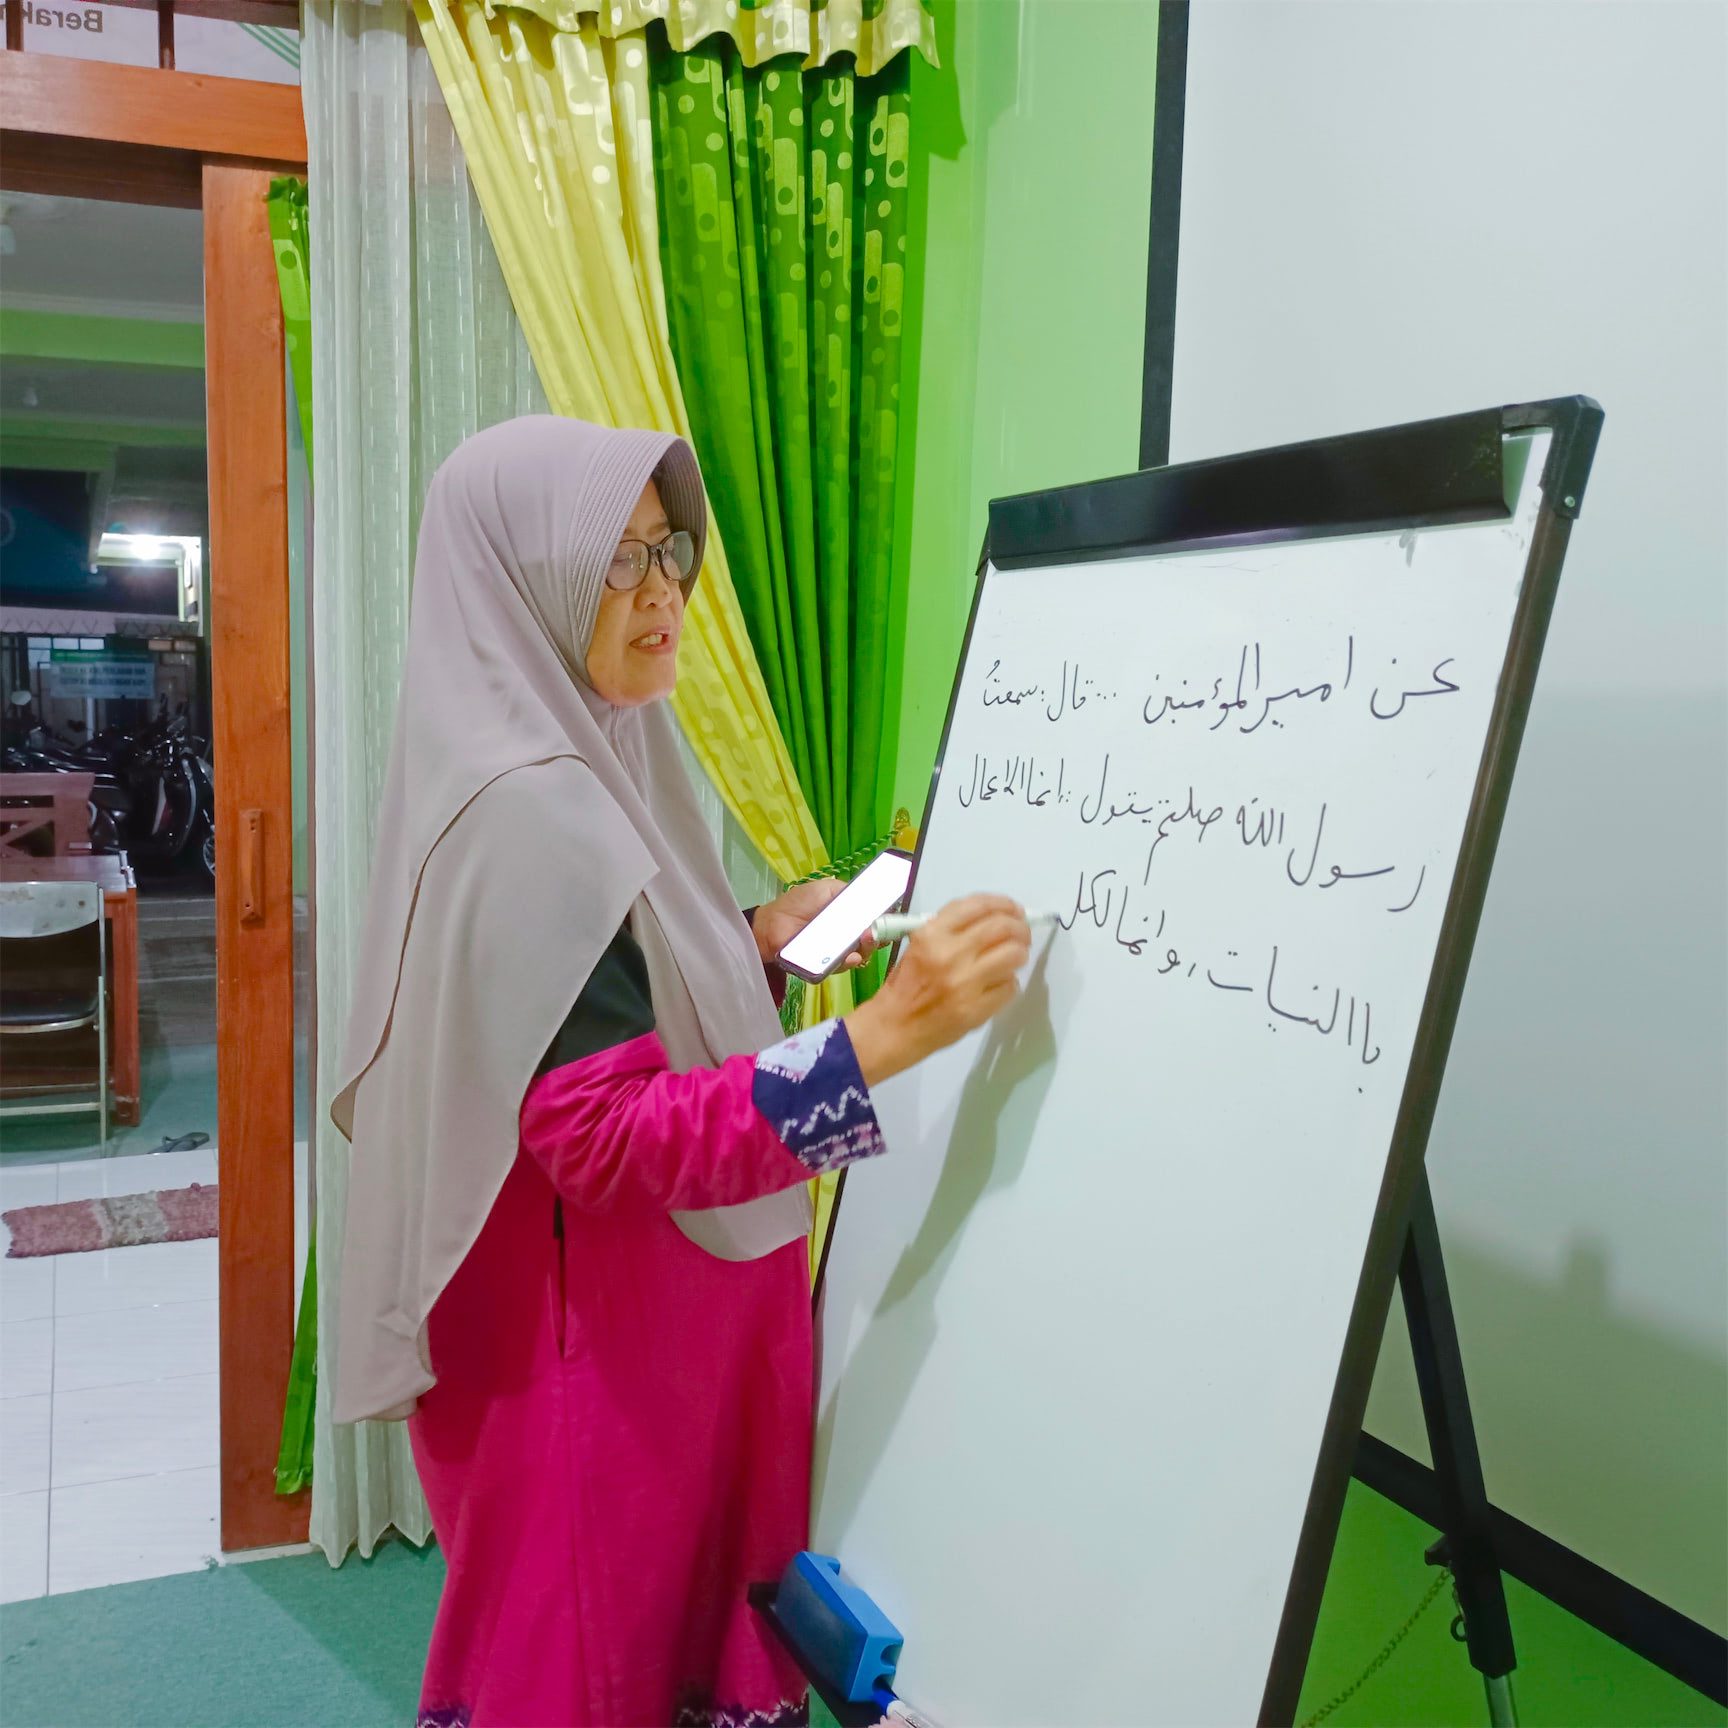 Berak
عن امير المؤمنين ... قال: سمعتُ
رسول الله صلعم يقول: إنما الاعمال
باالنيات، وانما لكل